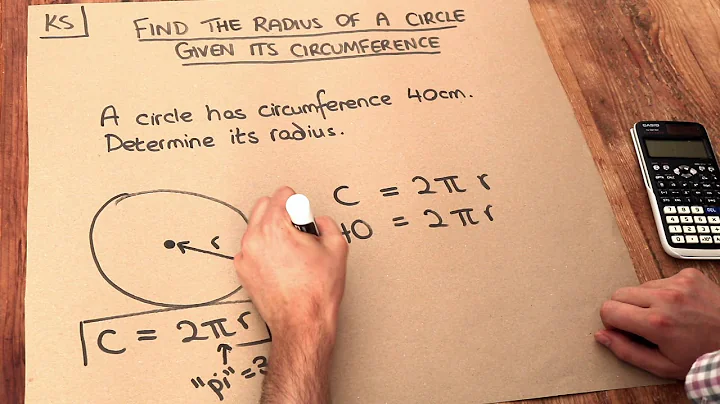 KS
FIND THE RADIUS OF A CIRCLE
GIVEN ITS CIRCUMFERENCE
A circle has circumference 40cm.
Determine its radius.
C = 2πr
40 = 2πr
r
C = 2πr
"pi" = 3
CASIO